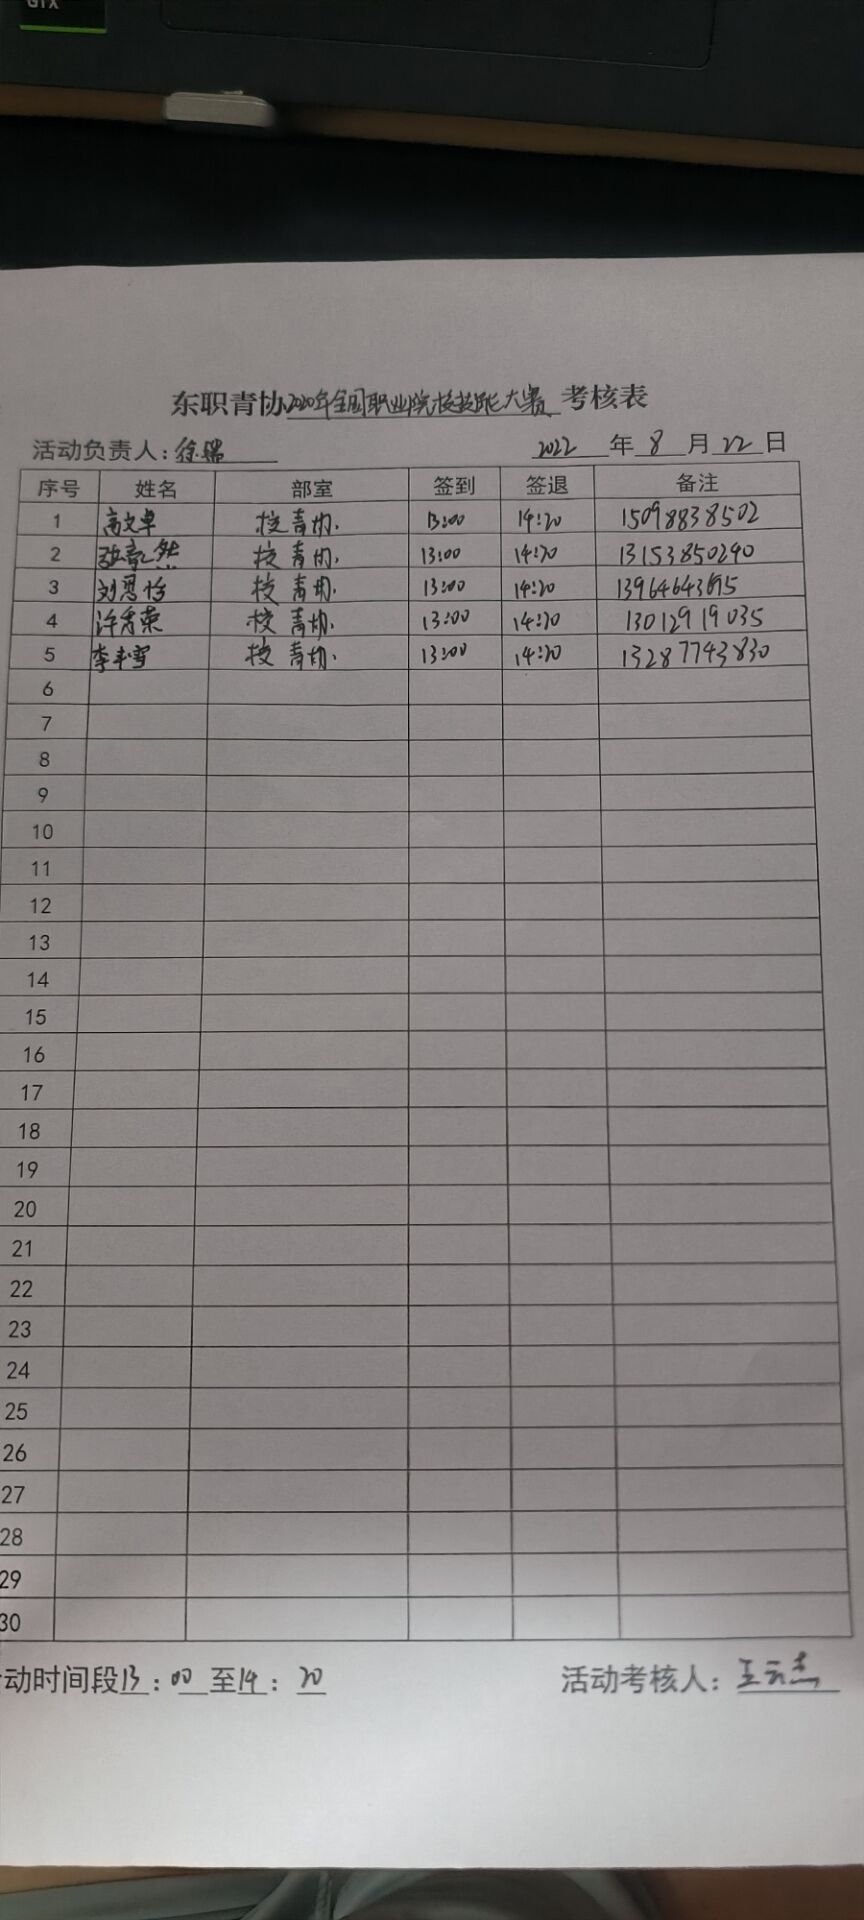 GTX
东职青协2020年全国职业院校技能大赛 考核表
活动负责人:徐瑞 2022 年 8 月 22 日
序号 姓名 部室 签到 签退 备注
1 高文卓 校青协. 13:00 14:20 15098838502
2 张 然 校青协. 13:00 14:20 13153850290
3 刘恩怡 校青协. 13:00 14:20 13964643695
4 许秀荣 校青协. 13:00 14:20 13012919035
5 李 雪 校青协. 13:00 14:20 13287743830
6
7
8
9
10
11
12
13
14
15
16
17
18
19
20
21
22
23
24
25
26
27
28
29
30
动时间段13:00至14:20 活动考核人:王云杰